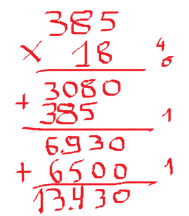 385
× 18
4
6
3080
+ 385
1
6.930
+ 6500
1
13.430